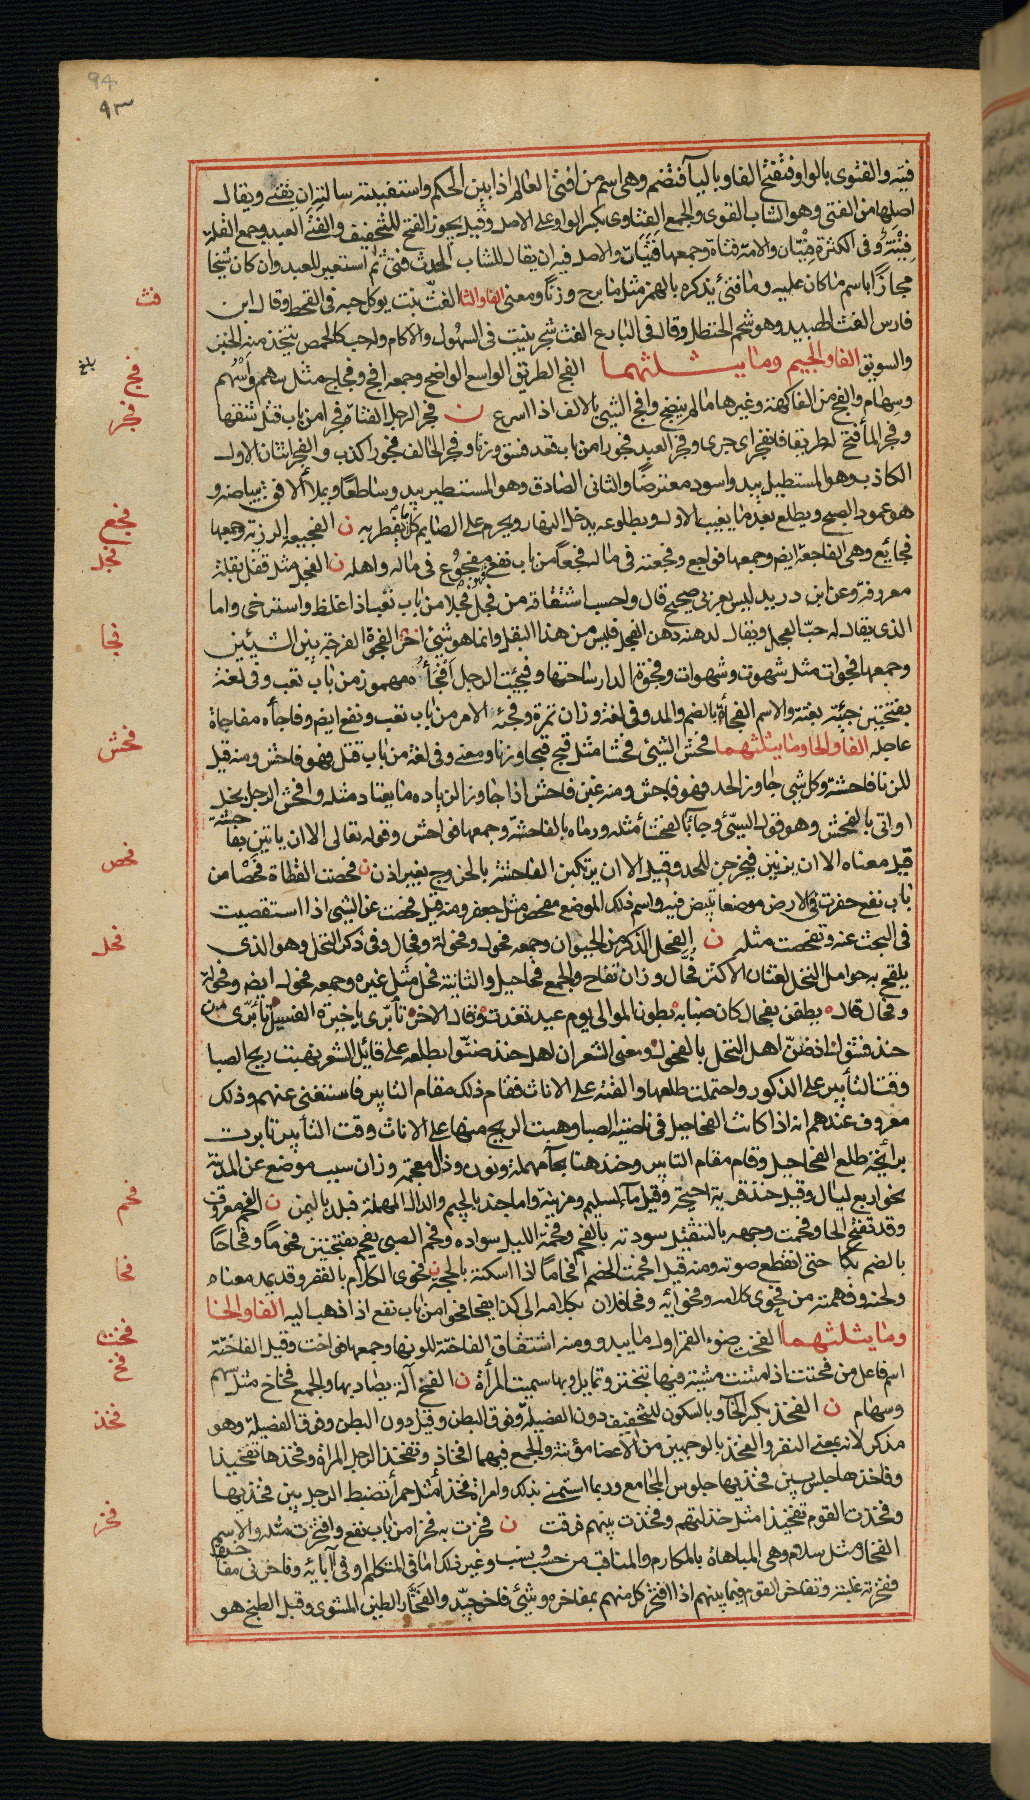 94
٩٣
فتية والفتوى بالواو فتفتح الفا وبالياء فتضم وهى اسم من افتى العالم اذا بين الحكم واستفتيته سالته ان يفتى ويقال
اصلها من الفتى وهو الشاب القوى والجمع الفتاوى بكسر الواو على الاصل وقيل يجوز الفتح للتخفيف والفتى العبد وجمع القلة
فتية وفى الكثرة فتيان والامة فتاة وجمعها فتيات والاصل فيه ان يقال للشاب الحدث فتى ثم استعير للعبد وان كان شيخا
مجازا باسم ما كان عليه وما فتئ يذكره بالهمز مثل ما برح وزنا ومعنى الفا والثا الفث نبت يوكل حبه فى القحط وقال ابن
فارس الفث الهبيد وهو شحم الحنظل وقال فى البارع الفث شجر ينبت فى السهول والاكام وله حب كالحمص يتخذ منه الخبز
والسويق الفا والجيم وما يثلثهما الفج الطريق الواسع الواضح وجمعه افج وفجاج مثل سهم واسهم
وسهام والفج من الفاكهة وغيرها ما لم ينضج وافج الشئ بالالف اذا اسرع ن فجر الرجل القناة فجرا من باب قتل شقها
وفجر الماء فتح له طريقا فانفجر اى جرى وفجر العبد فجورا من باب قعد فسق وزنا وفجر الحالف فجورا كذب والفجر اثنان الاول
الكاذب وهو المستطيل يبدو اسود معترضا والثانى الصادق وهو المستطير يبدو ساطعا ويملأ الافق ببياضه و
هو عمود الصبح ويطلع بعد ما يغيب الاول وبطلوعه يدخل النهار ويحرم على الصايم كل ما يفطر به ن الفجيعة الرزية وجمعها
فجائع وهى الفاجعة ايض وجمعها فواجع وفجعته فى ماله فجعا من باب نفع فهو مفجوع فى ماله واهله ن الفجل مثل قفل بقلة
معروفة وعن ابن دريد ليس بعربى صحيح قال واحسب اشتقاقه من فجل فجلا من باب تعب اذا غلظ واسترخى واما
الذى يقال له حب الفجل ويقال لدهنه دهن الفجل فليس من هذا البقل وانما هو شيئ اخر الفجوة الفرجة بين الشيئين
وجمعها فجوات مثل شهوة وشهوات وفجوة الدار ساحتها وفجئت الرجل افجأه مهموز من باب تعب وفى لغة
بفتحتين جئته بغتة والاسم الفجاءة بالضم والمد وفى لغة وزان تمرة وفجئه الامر من باب تعب ونفع ايض وفاجأه مفاجاة
عاجله الفا والحا وما يثلثهما فحش الشيئ فحشا مثل قبح قبحا وزنا ومعنى وفى لغة من باب قتل فهو فاحش ومنه قيل
للزنا فاحشة وكل شئ جاوز الحد فهو فاحش ومنه غبن فاحش اذا جاوز الزيادة ما يعتاد مثله وافحش الرجل بخل
او اتى بالفحش وهو قول السيئ وجاء بالفحشاء مثله ورماه بالفاحشة وجمعها فواحش وقوله تعالى الا ان ياتين بفا حشة
قيل معناه الا ان يزنين فيخرجن للحد وقيل الا ان يرتكبن الفاحشة بالخروج بغير اذن ن فحصت القطاة فحصا من
باب نفع حفرت فى الارض موضعا تبيض فيه واسم ذلك الموضع مفحص مثل جعفر ومنه قيل فحصت عن الشئ اذا استقصيت
فى البحث عنه وتفحصت مثله ن الفحل الذكر من الحيوان وجمعه فحول وفحولة وفحال وفى ذكر النخل وهو الذى
يلقح به حوامل النخل لغتان الاكثر فحال وزان تفاح والجمع فحاحيل والثانية فحل مثل غيره وجمعه فحول ايض وفحولة
وفحال قال يطفن بفحال كان ضبابه بطون الموالى يوم عيد تغدت وقال الاخر تأبرى يا خيرة الفسيل تأبرى من
حنذ فشولى اذ ضن اهل النخل بالفحول ومعنى الشعر ان اهل حنذ ضنوا بطلعه على قائل الشعر فهبت ريح الصبا
وقت التأبير على الذكور واحتملت طلعها والقته على الاناث فقام ذلك مقام التابير فاستغنى عنهم وذلك
معروف عندهم انه اذا كانت الفحاحيل فى ناحية الصبا وهبت الريح منها على الاناث وقت التأبير تابرت
برائحة طلع الفحاحيل وقام مقام التابير وحنذ هنا بحاء مهملة ونون وذال معجمة وزان سبب موضع عن المدينة
نحو اربع ليال وقيل حنذ قرية احيحة وقيل ماء لسليم ومزينة واما جند بالجيم والدال المهملة فبلد باليمن ن الفحم معروف
وقد تفتح الحا وفحمت وجهه بالتثقيل سودته بالفحم وفحمة الليل سواده وفحم الصبى يفحم بفتحتين فحوما وفحاما
بالضم بكا حتى انقطع صوته ومنه قيل افحمت الخصم افحاما اذا اسكته بالحجة ن فحوى الكلام بالقصر وقد يمد معناه
ولحنه وفهمته من فحوى كلامه وفحوائه وفحا فلان بكلامه الى كذا يفحا فحوا من باب نفع اذا ذهب اليه الفا والخا
وما يثلثهما الفخت ضوء القمر اول ما يبدو ومنه اشتقاق الفاختة للونها وجمعها فواخت وقيل الفاختة
اسم فاعل من فختت اذا مشت مشية فيها تبختر وتمايل وبها سميت المرأة ن الفخ آلة يصاد بها والجمع فخاخ مثل سهم
وسهام ن الفخذ بكسر الخاء وبالسكون للتخفيف دون القبيلة وفوق البطن وقيل دون البطن وفوق الفصيلة وهو
مذكر لانه بمعنى النفر والفخذ بالوجهين من الاعضا مؤنثة والجمع فيهما افخاذ وتفخذ الرجل المراة وفخذها تفخيذا
وفاخذها جلس بين فخذيها جلوس المجامع وربما استمنى بذلك وامراة فخذا مثل حمرا تضبط الرجل بين فخذيها
وفخذت القوم تفخيذا مثل خذلتهم وفخذت بينهم فرقت ن فخرت به فخرا من باب نفع وافتخرت مثله والاسم
الفخار مثل سلام وهى المباهاة بالمكارم والمناقب من حسب ونسب وغير ذلك اما فى المتكلم او فى آبائه وفاخرنى مفا خرة
ففخرته غلبته وتفاخر القوم فيما بينهم اذا افتخر كل منهم بمفاخره وشيئ فاخر جيد والفخار الطين المشوى وقبل الطبخ هو
فث
بلغ
فج
فجر
فجع
فجل
فجا
فحش
فحص
فحل
فحم
فحا
فخت
فخ
فخذ
فخر